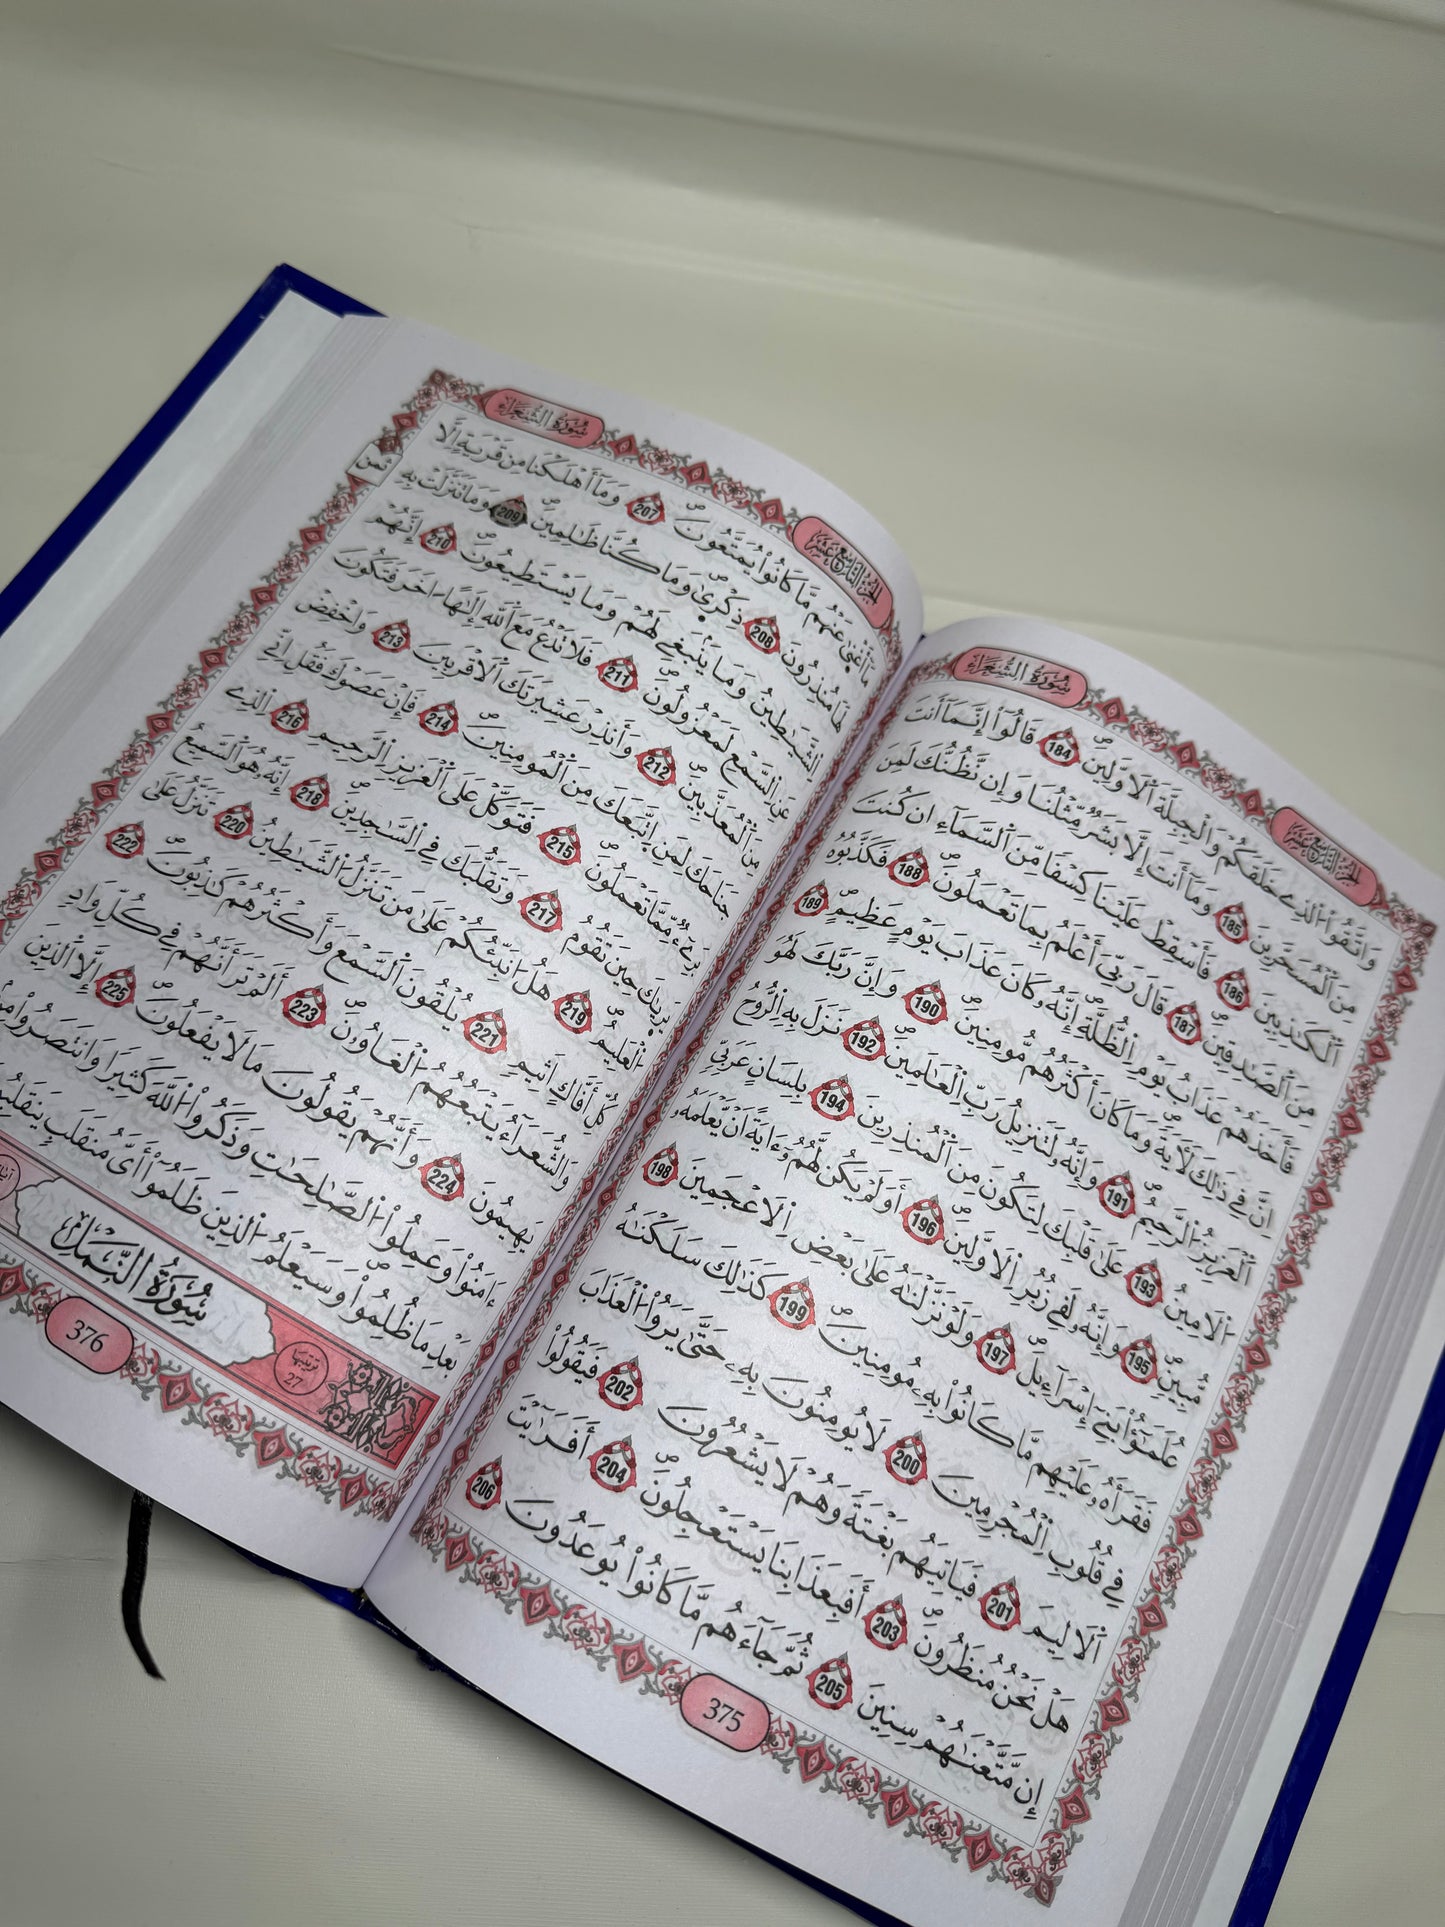 سُورَةُ الشُّعَرَاءِ
الجزء التاسع عشر
وَاتَّقُواْ الذِے خَلَقَكُمْ وَالْجِبِلَّةَ اَلَاوَّلِينَ 184 قَالُوٓاْ إِنَّمَآ أَنتَ
مِنَ اَلْمُسَحَّرِينَ 185 وَمَآ أَنتَ إِلَّا بَشَرٌ مِّثْلُنَا وَإِن نَّظُنُّكَ لَمِنَ
اَلْكَٰذِبِينَ 186 فَأَسْقِطْ عَلَيْنَا كِسْفًا مِّنَ اَلسَّمَآءِ ان كُنتَ
مِنَ اَلصَّٰدِقِينَ 187 قَالَ رَبِّيَ أَعْلَمُ بِمَا تَعْمَلُونَ 188 فَكَذَّبُوهُ
فَأَخَذَهُمْ عَذَابُ يَوْمِ اِلظُّلَّةِ إِنَّهُۥ كَانَ عَذَابَ يَوْمٍ عَظِيمٍ 189
إِنَّ فِے ذَٰلِكَ لَأٓيَةً وَمَا كَانَ أَكْثَرُهُم مُّومِنِينَ 190 وَإِنَّ رَبَّكَ لَهُوَ
اَلْعَزِيزُ اُلرَّحِيمُ 191 وَإِنَّهُۥ لَتَنزِيلُ رَبِّ اِلْعَٰلَمِينَ 192 نَزَلَ بِهِ اِلرُّوحُ
اُلَامِينُ 193 عَلَىٰ قَلْبِكَ لِتَكُونَ مِنَ اَلْمُنذِرِينَ 194 بِلِسَانٍ عَرَبِيٍّ
مُّبِينٍ 195 وَإِنَّهُۥ لَفِے زُبُرِ اِلَاوَّلِينَ 196 أَوَلَمْ يَكُن لَّهُمُۥٓ ءَايَةً اَنْ يَّعْلَمَهُۥ
عُلَمَٰٓؤُاْ بَنِےٓ إِسْرَآءِيلَ 197 وَلَوْ نَزَّلْنَٰهُ عَلَىٰ بَعْضِ اِلَاعْجَمِينَ 198
فَقَرَأَهُۥ عَلَيْهِم مَّا كَانُواْ بِهِۦ مُومِنِينَ 199 كَذَٰلِكَ سَلَكْنَٰهُ
فِے قُلُوبِ اِلْمُجْرِمِينَ 200 لَا يُومِنُونَ بِهِۦ حَتَّىٰ يَرَوُاْ اُلْعَذَابَ
اَلَالِيمَ 201 فَيَاتِيَهُم بَغْتَةً وَهُمْ لَا يَشْعُرُونَ 202 فَيَقُولُواْ
هَلْ نَحْنُ مُنظَرُونَ 203 أَفَبِعَذَابِنَا يَسْتَعْجِلُونَ 204 أَفَرَٰيْتَ
إِن مَّتَّعْنَٰهُمْ سِنِينَ 205 ثُمَّ جَآءَهُم مَّا كَانُواْ يُوعَدُونَ 206
375
سُورَةُ الشُّعَرَاءِ
الجزء التاسع عشر
ثمن
مَآ أَغْنَىٰ عَنْهُم مَّا كَانُواْ يُمَتَّعُونَ 207 وَمَآ أَهْلَكْنَا مِن قَرْيَةٍ اِلَّا
لَهَا مُنذِرُونَ 208 ذِكْرَىٰ وَمَا كُنَّا ظَٰلِمِينَ 209 وَمَا تَنَزَّلَتْ بِهِ
اِلشَّيَٰطِينُ وَمَا يَنۢبَغِے لَهُمْ وَمَا يَسْتَطِيعُونَ 210 إِنَّهُمْ
عَنِ اِلسَّمْعِ لَمَعْزُولُونَ 211 فَلَا تَدْعُ مَعَ اَللَّهِ إِلَٰهًا اٰخَرَ فَتَكُونَ
مِنَ اَلْمُعَذَّبِينَ 212 وَأَنذِرْ عَشِيرَتَكَ اَلَاقْرَبِينَ 213 وَاخْفِضْ
جَنَاحَكَ لِمَنِ اِتَّبَعَكَ مِنَ اَلْمُومِنِينَ 214 فَإِنْ عَصَوْكَ فَقُلِ اِنِّے
بَرِےٓءٌ مِّمَّا تَعْمَلُونَ 215 فَتَوَكَّلْ عَلَى اَلْعَزِيزِ اِلرَّحِيمِ 216 اِلذِے
يَرٰىكَ حِينَ تَقُومُ 217 وَتَقَلُّبَكَ فِے اِلسَّٰجِدِينَ 218 إِنَّهُۥ هُوَ اَلسَّمِيعُ
اُلْعَلِيمُ 219 هَلُ انَبِّئُكُمْ عَلَىٰ مَن تَنَزَّلُ اُلشَّيَٰطِينُ 220 تَنَزَّلُ عَلَىٰ
كُلِّ أَفَّاكٍ اَثِيمٍ 221 يُلْقُونَ اَلسَّمْعَ وَأَكْثَرُهُمْ كَٰذِبُونَ 222
وَالشُّعَرَآءُ يَتْبَعُهُمُ اُلْغَاوُۥنَ 223 أَلَمْ تَرَ أَنَّهُمْ فِے كُلِّ وَادٍ
يَهِيمُونَ 224 وَأَنَّهُمْ يَقُولُونَ مَا لَا يَفْعَلُونَ 225 إِلَّا اَلذِينَ
ءَامَنُواْ وَعَمِلُواْ اُلصَّٰلِحَٰتِ وَذَكَرُواْ اُللَّهَ كَثِيرًا وَانتَصَرُواْ مِنۢ
بَعْدِ مَا ظُلِمُواْ وَسَيَعْلَمُ اُلذِينَ ظَلَمُوٓاْ أَيَّ مُنقَلَبٍ يَنقَلِبُونَ
ترتيبها 27
سُورَةُ النَّمْلِ
376